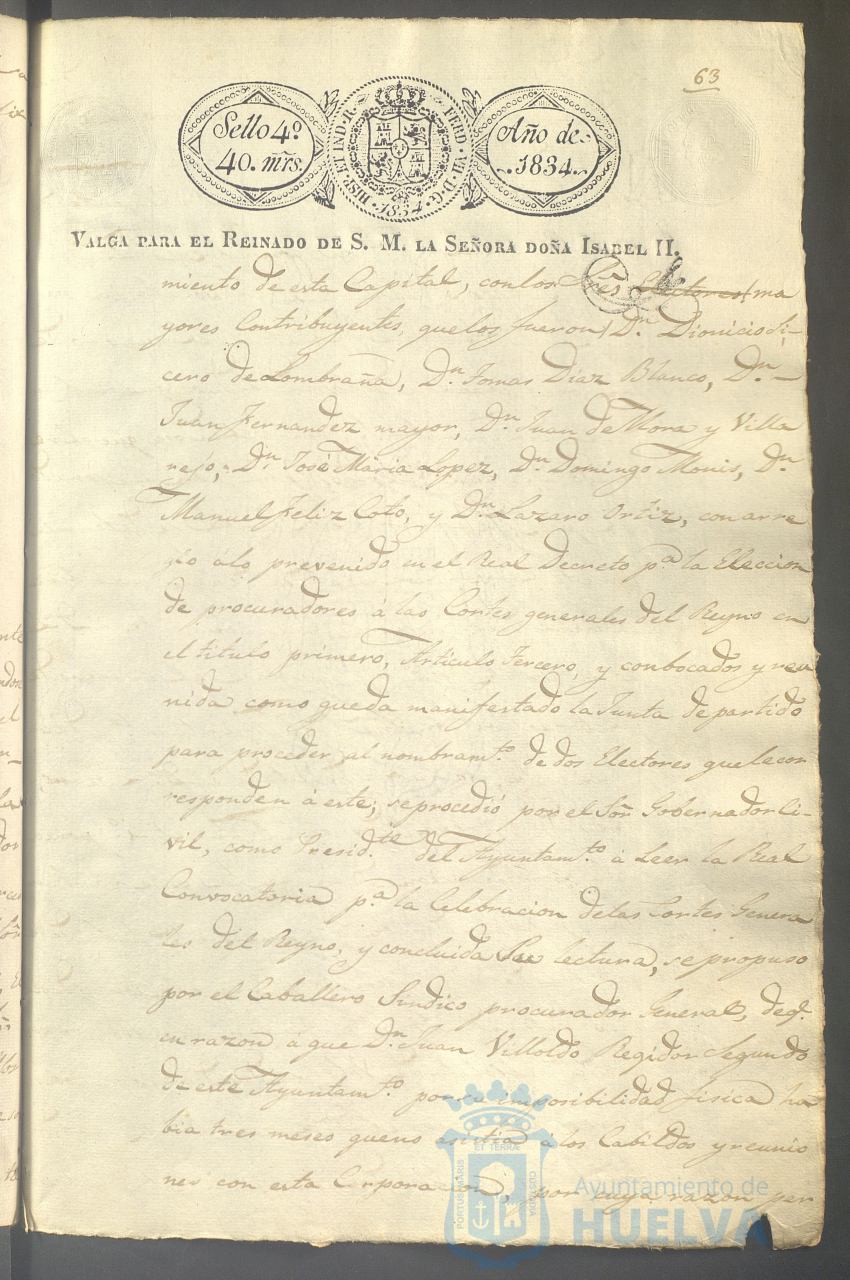 63
Sello 4.º
40. mrs.
HISP. ET IND. R. FERD. VII. D. G. 1834
Año de
1834.
VALGA PARA EL REINADO DE S. M. LA SEÑORA DOÑA ISABEL II.
miento de esta Capital, con los tres Electores ma
yores Contribuyentes, que los fueron D.n Dionicio Si-
cero de Lombraña, D.n Tomas Diaz Blanco, D.n
Juan Fernandez mayor, D.n Juan de Mora y Villa
rejo, D.n José Maria Lopez, D.n Domingo Monis, D.n
Manuel Feliz Coto, y D.n Lazaro Ortiz, con arre
glo álo prevenido en el Real Decreto p.a la Eleccion
de procuradores á las Cortes generales del Reyno en
el titulo primero, Articulo Tercero, y conbocados y reu
nida como queda manifestado la Junta de partido
para proceder al nombram.to de dos Electores que le cor
responden á este; se procedió por el Sor Gobernador Ci-
vil, como Presid.te del Ayuntam.to á Leer la Real
Convocatoria p.a la Celebracion de las Cortes Genera
les del Reyno, y concluida su lectura, se propuso
por el Caballero Sindico procurador General, de q.
en razon á que D.n Juan Villoldo Regidor Segundo
de este Ayuntam.to por su imposibilidad fisica ha
bia tres meses que no asistia á los Cabildos y reunio
nes con esta Crporacion, por cuya razon per
PORTUS MARIS ET TERRÆ CUSTODIA
Ayuntamiento de
HUELVA